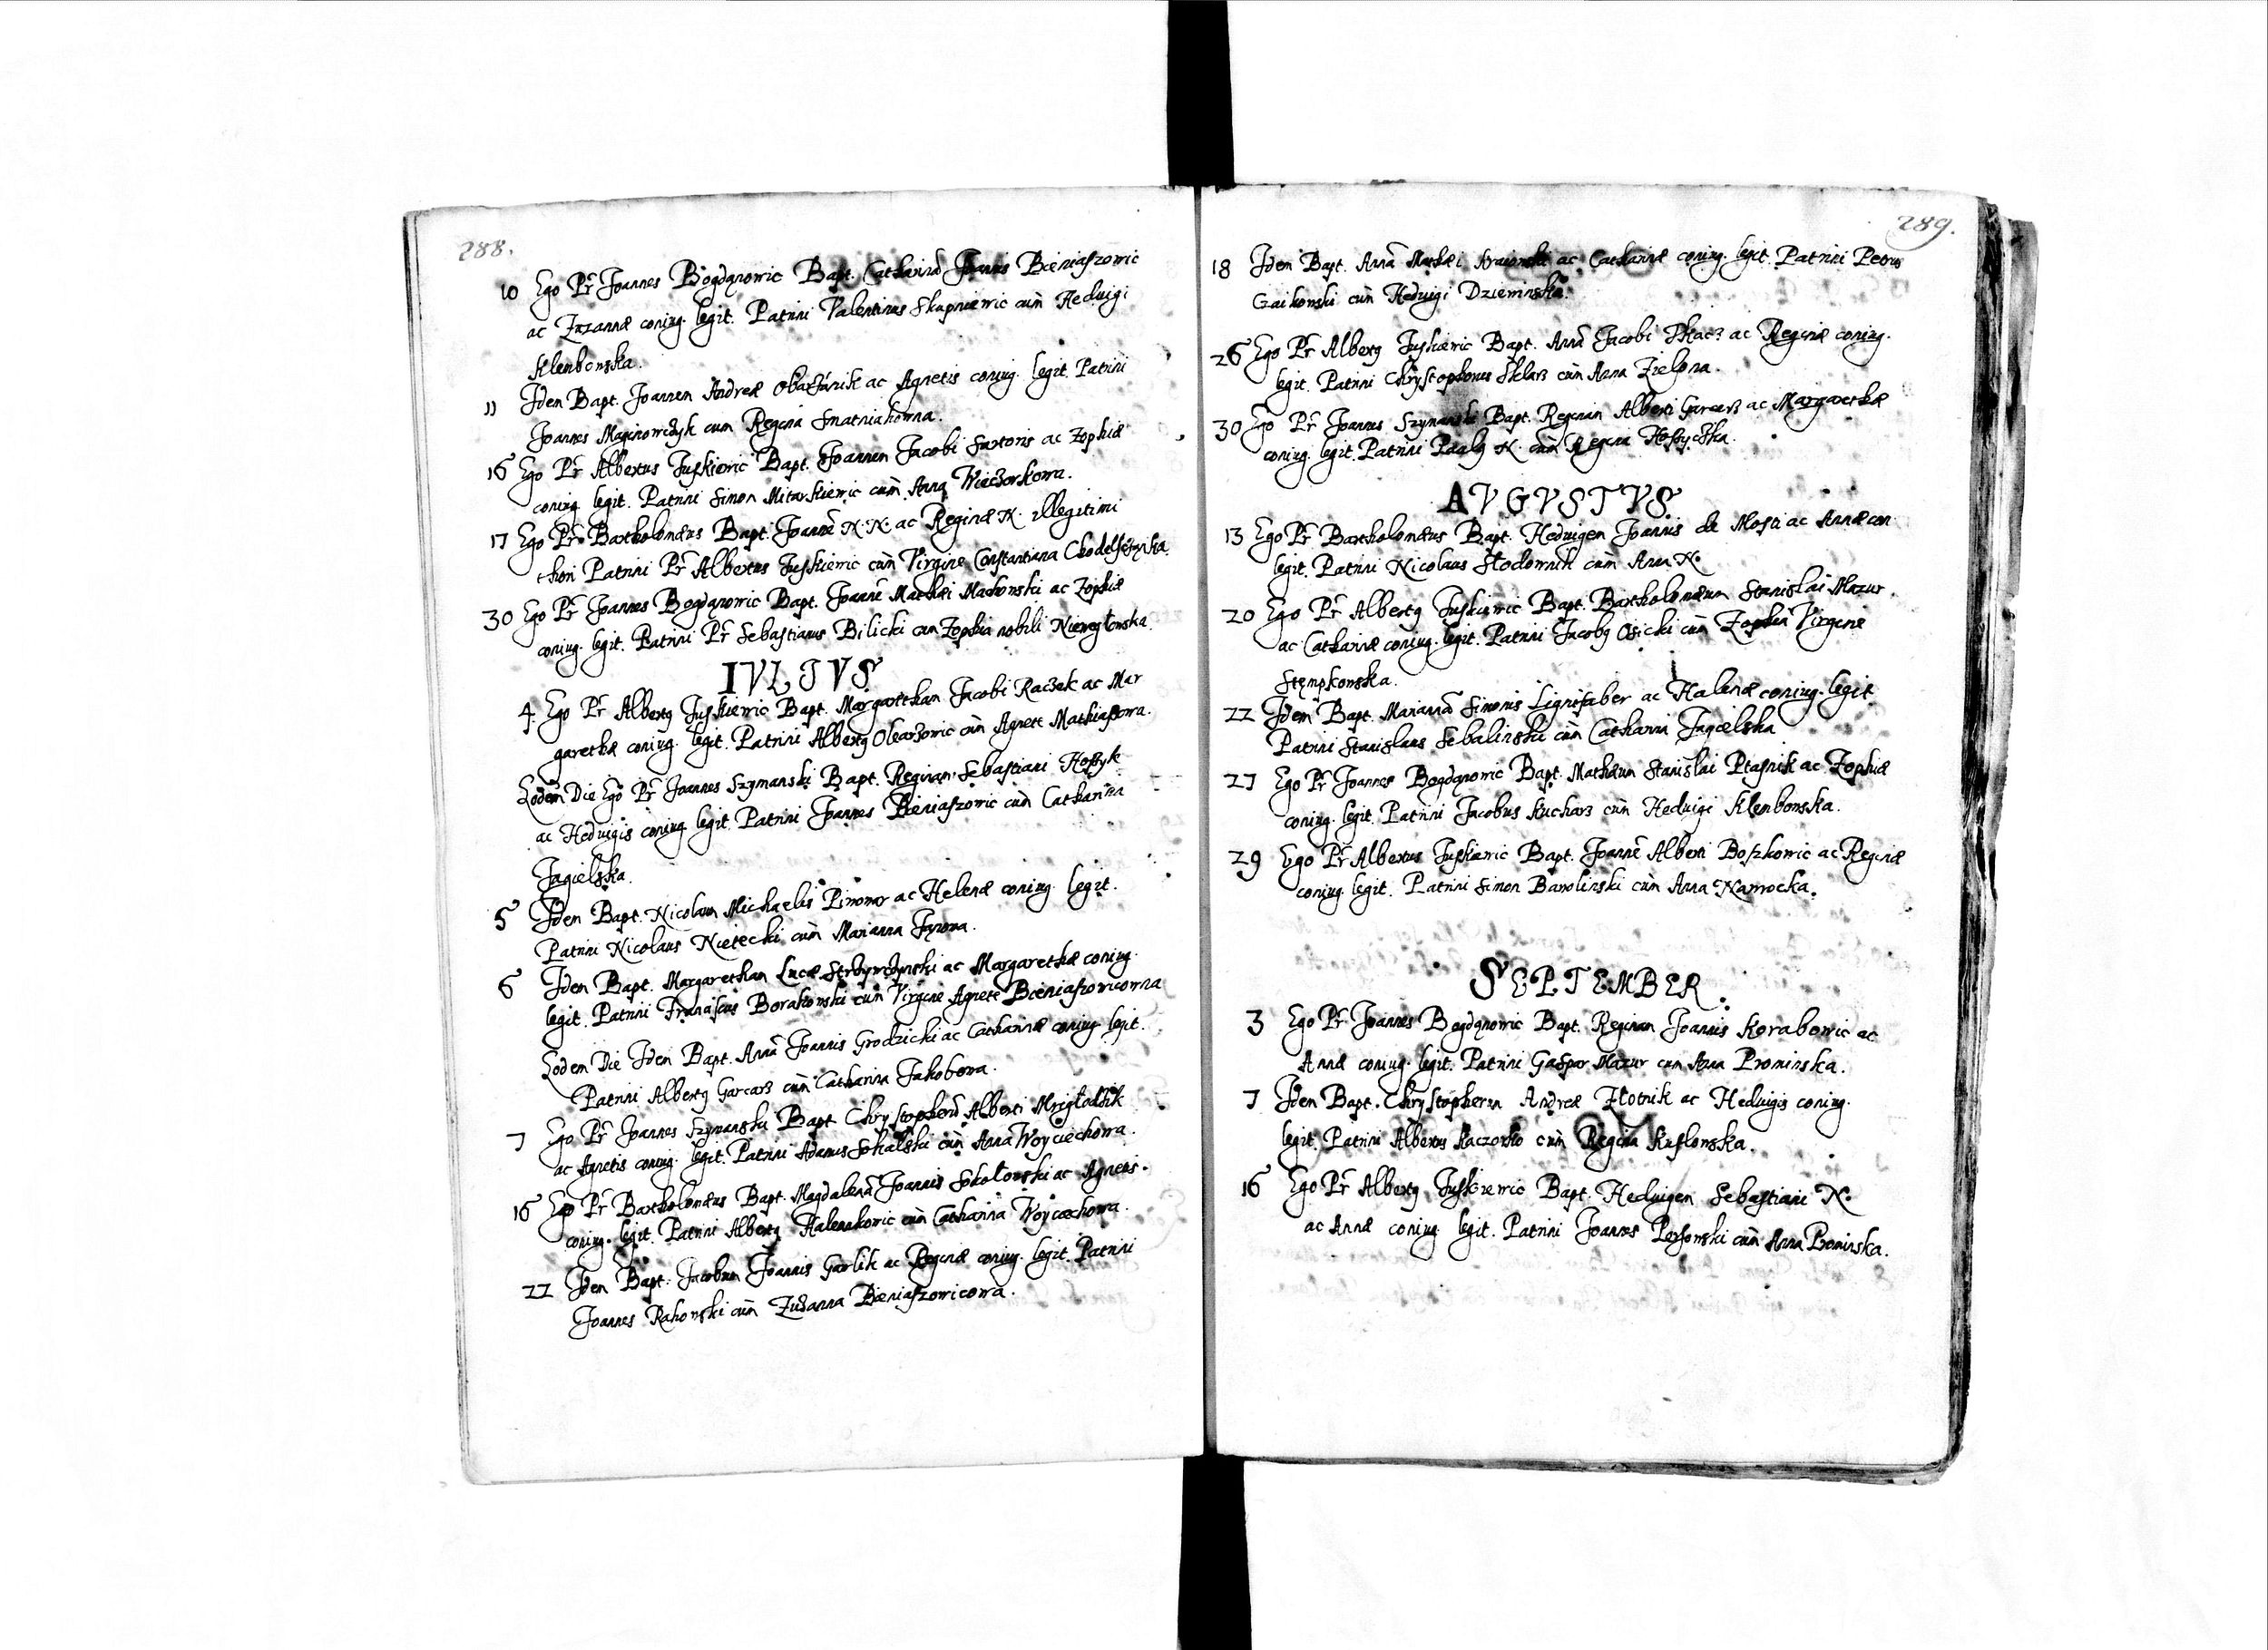 288.
10 Ego Pr Joannes Bogdanowic Bapt. Catharinã Joannis Bieniaszowic
ac Zuzannæ coniug. legit. Patrini Valentinus Skupniewic cum Hedvigi
Klembowska.
11 Idem Bapt. Joannem Andreæ ac Agnetis coniug. legit. Patrini
Joannes Marinowczyk cum Regina Smatniakowna.
16 Ego Pr Albertus Juskiewic Bapt. Joannem Jacobi Sartoris ac Zophiæ
coniug. legit. Patrini Simon Mitarkiewic cum Anna Wieczorkowa.
17 Ego Pr Bartholomæus Bapt. Joannẽ N. N. ac Reginæ N. illegitimi
thori Patrini Pr Albertus Juskiewic cum Virgine Constantiana
30 Ego Pr Joannes Bogdanowic Bapt. Joannẽ Mathæi Machowski ac Zophiæ
coniug. legit. Patrini Pr Sebastianus Bilicki cum Zophia nobili
IVLIVS
4. Ego Pr Albertg Juskiewic Bapt. Margaretham Jacobi Raczek ac Mar
garethæ coniug. legit. Patrini Albertg Olearzowic cum Agnete Mathiaszowa.
Eodem Die Ego Pr Joannes Szymanski Bapt. Reginam Sebastiani Hoszyk
ac Hedvigis coniug. legit. Patrini Joannes Bieniaszowic cum Catharina
Jagielska.
5 Idem Bapt. Nicolaum Michaelis Piwowar ac Helenæ coniug. legit.
Patrini Nicolaus Nietecki cum Marianna
6 Idem Bapt. Margaretham Lucæ ac Margarethæ coniug.
legit. Patrini Franciscus Borakowski cum Virgine Agnete Bieniaszowicowna
Eodem Die Idem Bapt. Annã Joannis Grodzicki ac Catharinæ coniug. legit.
Patrini Albertg Garcarz cum Catharina Jakobowa.
7 Ego Pr Joannes Szymanski Bapt. Chrystopherũ Alberti
ac Agnetis coniug. legit. Patrini Adamus Sokalski cum Anna Woyciechowa.
16 Ego Pr Bartholomæus Bapt. Magdalenã Joannis Sokolowski ac Agnetis.
coniug. legit. Patrini Albertg Halenkowic cum Catharina Woyciechowa.
22 Idem Bapt. Jacobum Joannis Garlik ac Reginæ coniug. legit. Patrini
Joannes Rakowski cum Zuzanna Bieniaszowicowa.
289.
18 Idem Bapt. Annã Mathæi Kraiowski ac Catharinæ coniug. legit. Patrini Petrus
Gaikowski cum Hedvigi Dziewinska.
26 Ego Pr Albertg Juskiewic Bapt. Annã Jacobi Tkacz ac Reginæ coniug.
legit. Patrini Chrystophorus Sklarz cum Anna Zielona.
30 Ego Pr Joannes Szymanski Bapt. Reginam Alberti Garcarz ac Margarethæ
coniug. legit. Patrini Paulg N. cum Regina Hoszyczka.
AVGVSTVS
13 Ego Pr Bartholomæus Bapt. Hedvigen Joannis de Mosti ac Annæ con
legit. Patrini Nicolaus Slodownik cum Anna N.
20 Ego Pr Albertg Juskiewic Bapt. Bartholomæum Stanislai Mazur
ac Catharinæ coniug. legit. Patrini Jacobg Osicki cum Zophia Virgine
Stempkowska.
22 Idem Bapt. Mariannã Simonis Lignifaber ac Halenæ coniug. legit
Patrini Stanislaus Sebalinski cum Catharina Jagielska
27 Ego Pr Joannes Bogdanowic Bapt. Mathæum Stanislai Ptasnik ac Zophiæ
coniug. legit. Patrini Jacobus Kucharz cum Hedvigi Klembowska.
29 Ego Pr Albertus Juskiewic Bapt. Joannẽ Alberti Boszkowic ac Reginæ
coniug. legit. Patrini Simon Bawolinski cum Anna Nawrocka.
SEPTEMBER
3 Ego Pr Joannes Bogdanowic Bapt. Reginam Joannis Korabowic ac
Annæ coniug. legit. Patrini Gaspar Mazur cum Anna Prominska.
7 Idem Bapt. Chrystopherum Andreæ Zlotnik ac Hedvigis coniug.
legit. Patrini Albertus Kaczorko cum Regina Kuslowska.
16 Ego Pr Albertg Juskiewic Bapt. Hedvigen Sebastiani N.
ac Annæ coniug. legit. Patrini Joannes Persowski cum Anna Prominska.